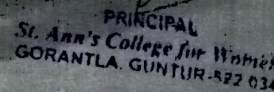 PRINCIPAL
St. Ann's College for Women
GORANTLA. GUNTUR-522 034